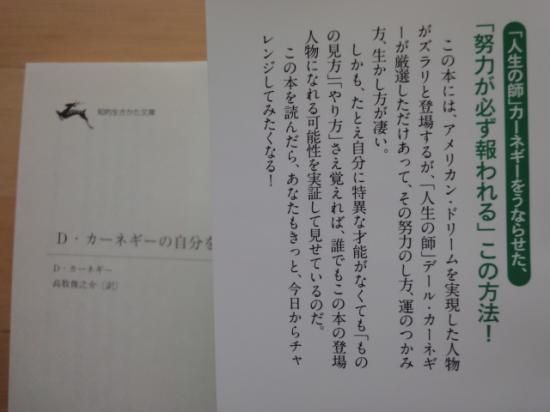 「人生の師」カーネギーをうならせた、
「努力が必ず報われる」この方法!
この本には、アメリカン・ドリームを実現した人物
がズラリと登場するが、「人生の師」デール・カーネギ
ーが厳選しただけあって、その努力のし方、運のつかみ
方、生かし方が凄い。
しかも、たとえ自分に特異な才能がなくても「もの
の見方」「やり方」さえ覚えれば、誰でもこの本の登場
人物になれる可能性を実証して見せているのだ。
この本を読んだら、あなたもきっと、今日からチャ
レンジしてみたくなる!
知的生きかた文庫
D・カーネギーの自分を
D・カーネギー
高牧俊之介〔訳〕